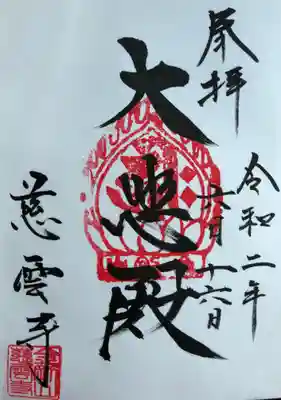 奉拝
令和二年
六月十六日
大悲殿
慈雲寺